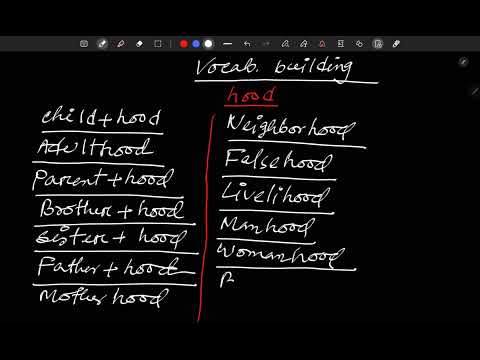 Vocab. building
hood
child+hood
Adulthood
Parent+hood
Brother+hood
Sister+hood
Father+hood
Motherhood
Neighborhood
Falsehood
Livelihood
Manhood
Womanhood
B